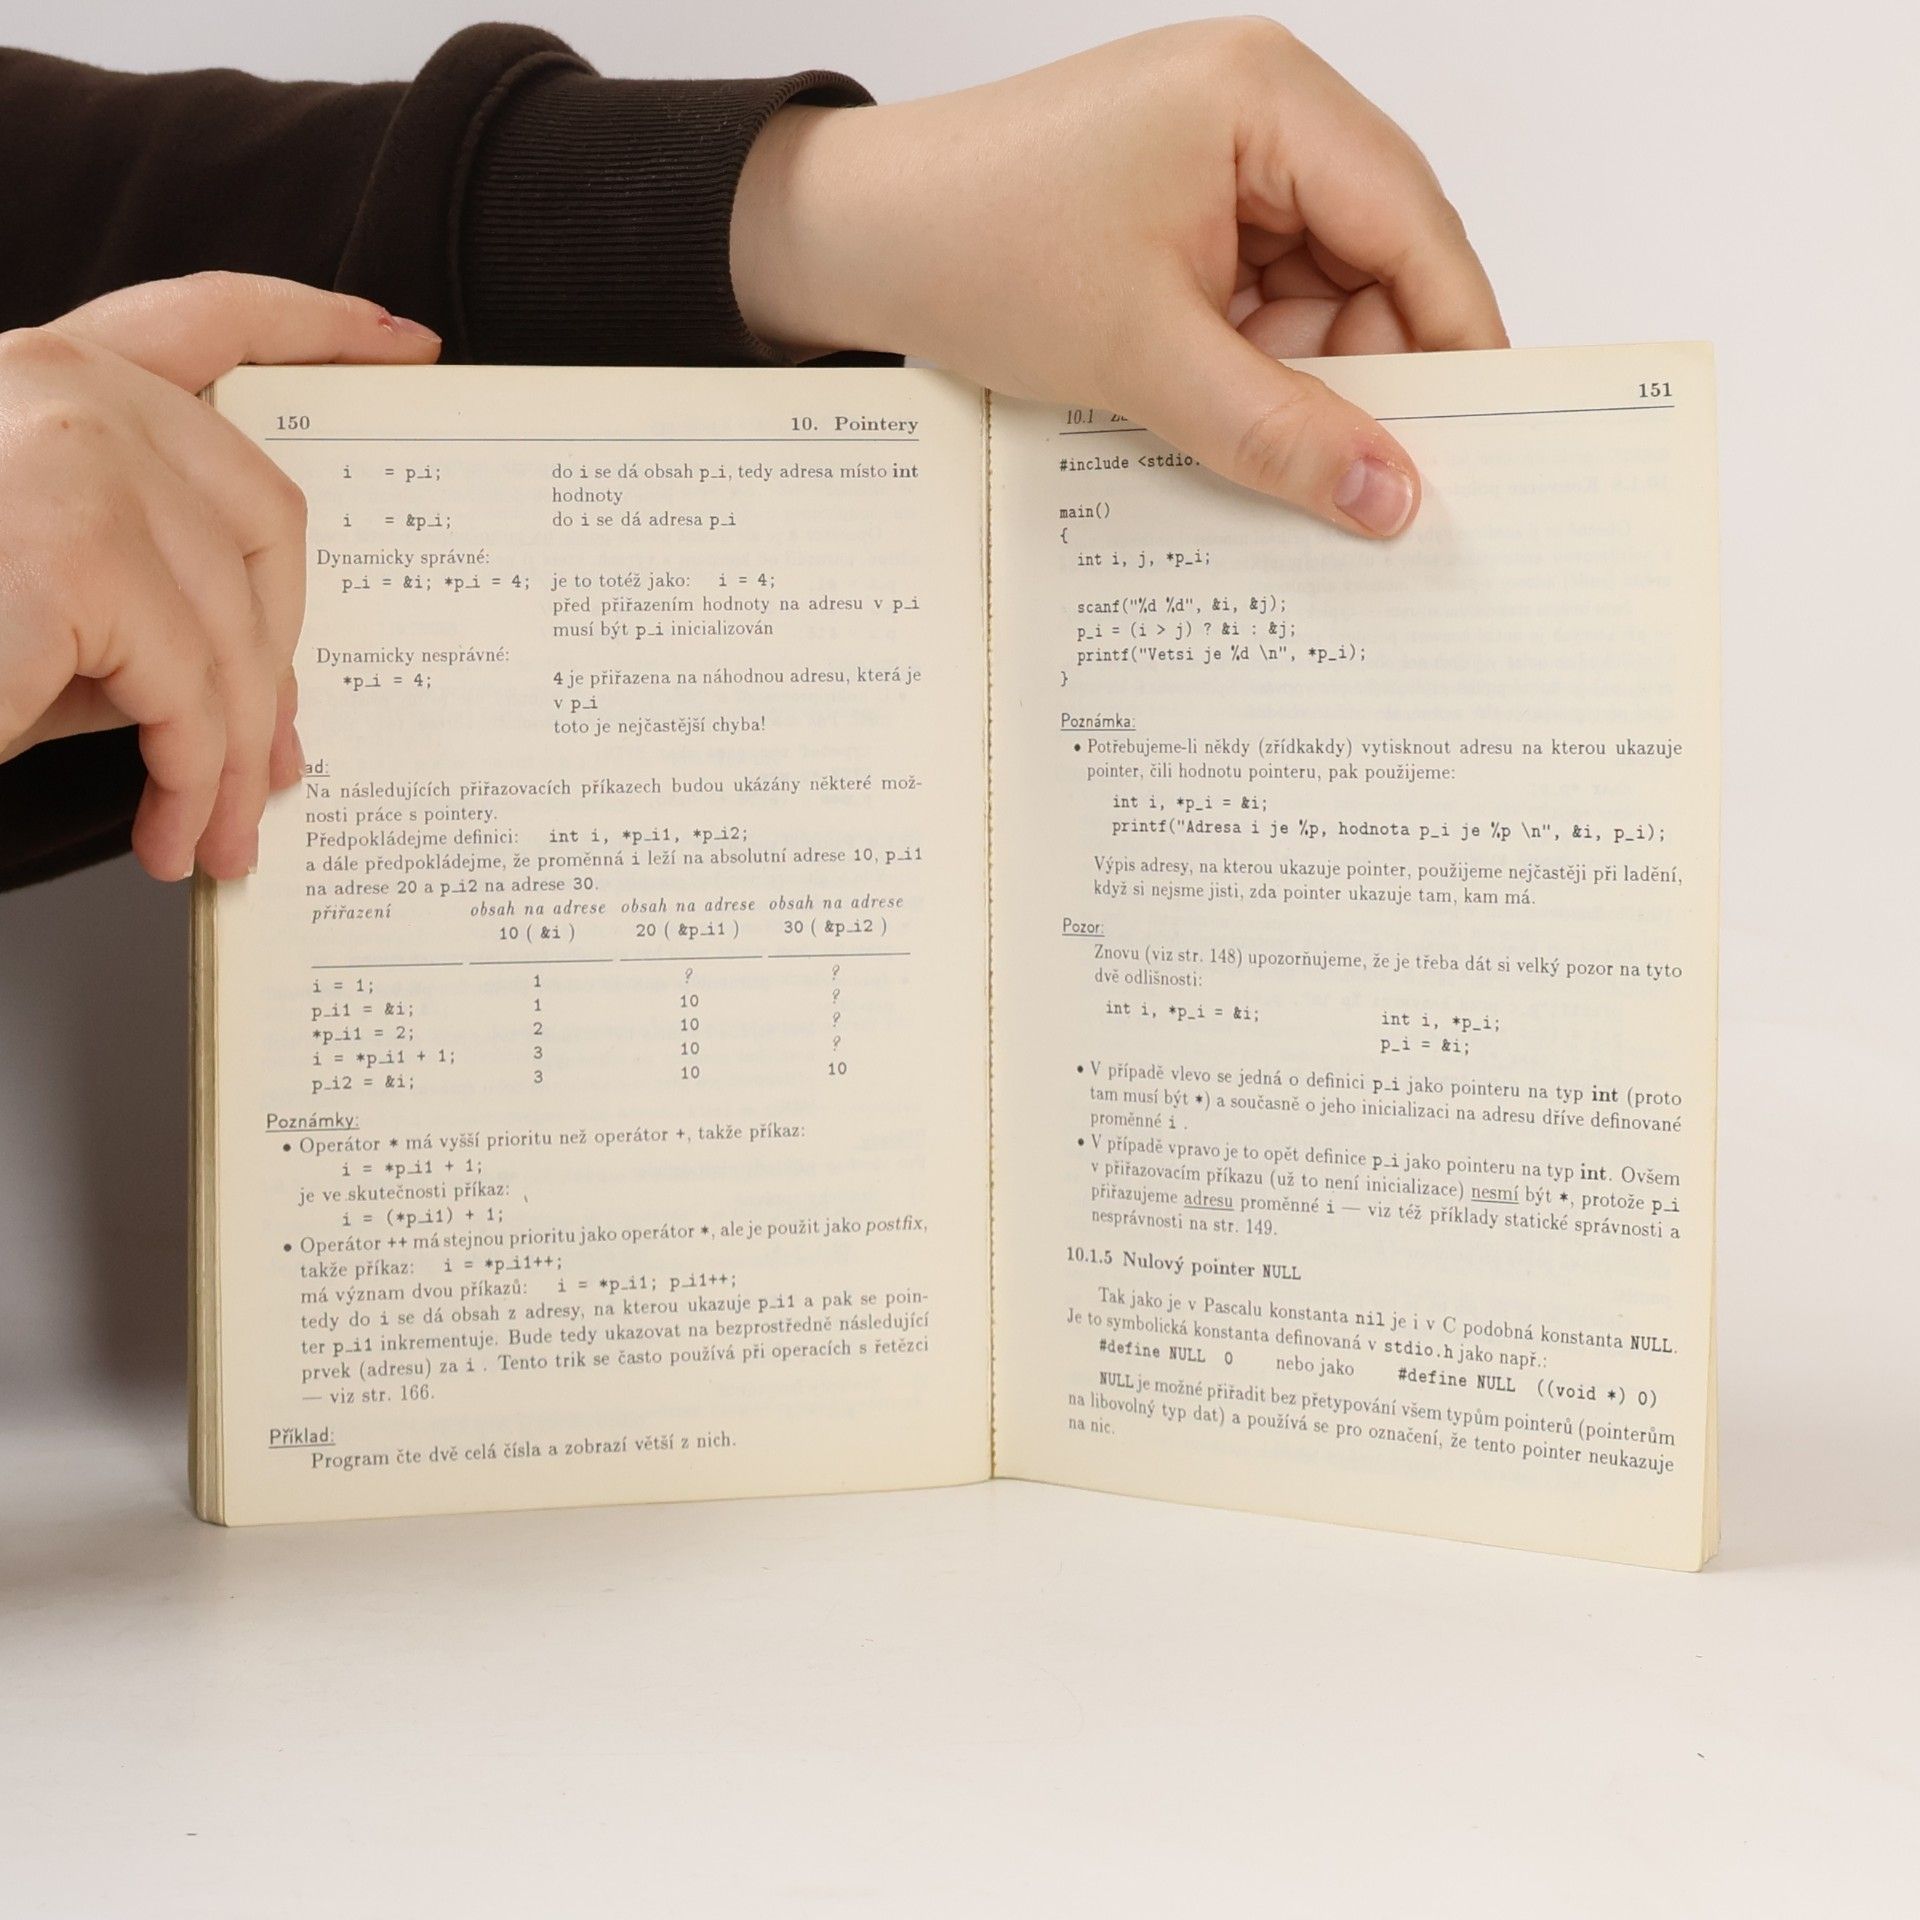 150 10. Pointery
i = p_i; do i se dá obsah p_i, tedy adresa místo int
hodnoty
i = &p_i; do i se dá adresa p_i
Dynamicky správné:
p_i = &i; *p_i = 4; je to totéž jako: i = 4;
před přiřazením hodnoty na adresu v p_i
musí být p_i inicializován
Dynamicky nesprávné:
*p_i = 4; 4 je přiřazena na náhodnou adresu, která je
v p_i
toto je nejčastější chyba!
Na následujících přiřazovacích příkazech budou ukázány některé mož-
nosti práce s pointery.
Předpokládejme definici: int i, *p_i1, *p_i2;
a dále předpokládejme, že proměnná i leží na absolutní adrese 10, p_i1
na adrese 20 a p_i2 na adrese 30.
přiřazení obsah na adrese obsah na adrese obsah na adrese
10 ( &i ) 20 ( &p_i1 ) 30 ( &p_i2 )
i = 1; 1 ? ?
p_i1 = &i; 1 10 ?
*p_i1 = 2; 2 10 ?
i = *p_i1 + 1; 3 10 ?
p_i2 = &i; 3 10 10
Poznámky:
• Operátor * má vyšší prioritu než operátor +, takže příkaz:
i = *p_i1 + 1;
je ve skutečnosti příkaz:
i = (*p_i1) + 1;
• Operátor ++ má stejnou prioritu jako operátor *, ale je použit jako postfix,
takže příkaz: i = *p_i1++;
má význam dvou příkazů: i = *p_i1; p_i1++;
tedy do i se dá obsah z adresy, na kterou ukazuje p_i1 a pak se poin-
ter p_i1 inkrementuje. Bude tedy ukazovat na bezprostředně následující
prvek (adresu) za i . Tento trik se často používá při operacích s řetězci
— viz str. 166.
Příklad:
Program čte dvě celá čísla a zobrazí větší z nich.
10.1 151
#include <stdio.
main()
{
int i, j, *p_i;
scanf("%d %d", &i, &j);
p_i = (i > j) ? &i : &j;
printf("Vetsi je %d \n", *p_i);
}
Poznámka:
• Potřebujeme-li někdy (zřídkakdy) vytisknout adresu na kterou ukazuje
pointer, čili hodnotu pointeru, pak použijeme:
int i, *p_i = &i;
printf("Adresa i je %p, hodnota p_i je %p \n", &i, p_i);
Výpis adresy, na kterou ukazuje pointer, použijeme nejčastěji při ladění,
když si nejsme jisti, zda pointer ukazuje tam, kam má.
Pozor:
Znovu (viz str. 148) upozorňujeme, že je třeba dát si velký pozor na tyto
dvě odlišnosti:
int i, *p_i = &i; int i, *p_i;
p_i = &i;
• V případě vlevo se jedná o definici p_i jako pointeru na typ int (proto
tam musí být *) a současně o jeho inicializaci na adresu dříve definované
proměnné i .
• V případě vpravo je to opět definice p_i jako pointeru na typ int. Ovšem
v přiřazovacím příkazu (už to není inicializace) nesmí být *, protože p_i
přiřazujeme adresu proměnné i — viz též příklady statické správnosti a
nesprávnosti na str. 149.
10.1.5 Nulový pointer NULL
Tak jako je v Pascalu konstanta nil je i v C podobná konstanta NULL.
Je to symbolická konstanta definovaná v stdio.h jako např.:
#define NULL 0 nebo jako #define NULL ((void *) 0)
NULL je možné přiřadit bez přetypování všem typům pointerů (pointerům
na libovolný typ dat) a používá se pro označení, že tento pointer neukazuje
na nic.